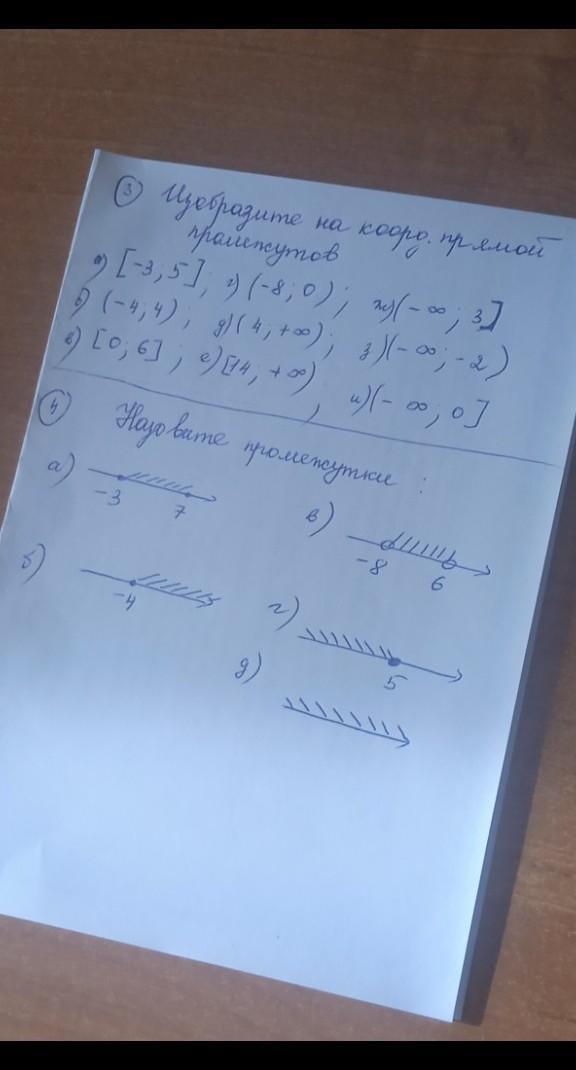 ③ Изобразите на коорд. прямой
промежутов
а) [-3; 5]; г) (-8; 0); ж) (-∞; 3]
б) (-4; 4); д) (4; +∞); з) (-∞; -2)
в) [0; 6]; е) [14; +∞); и) (-∞; 0]
④ Назовите промежутки:
а) -3 7
в) -8 6
б) -4
г) 5
д)